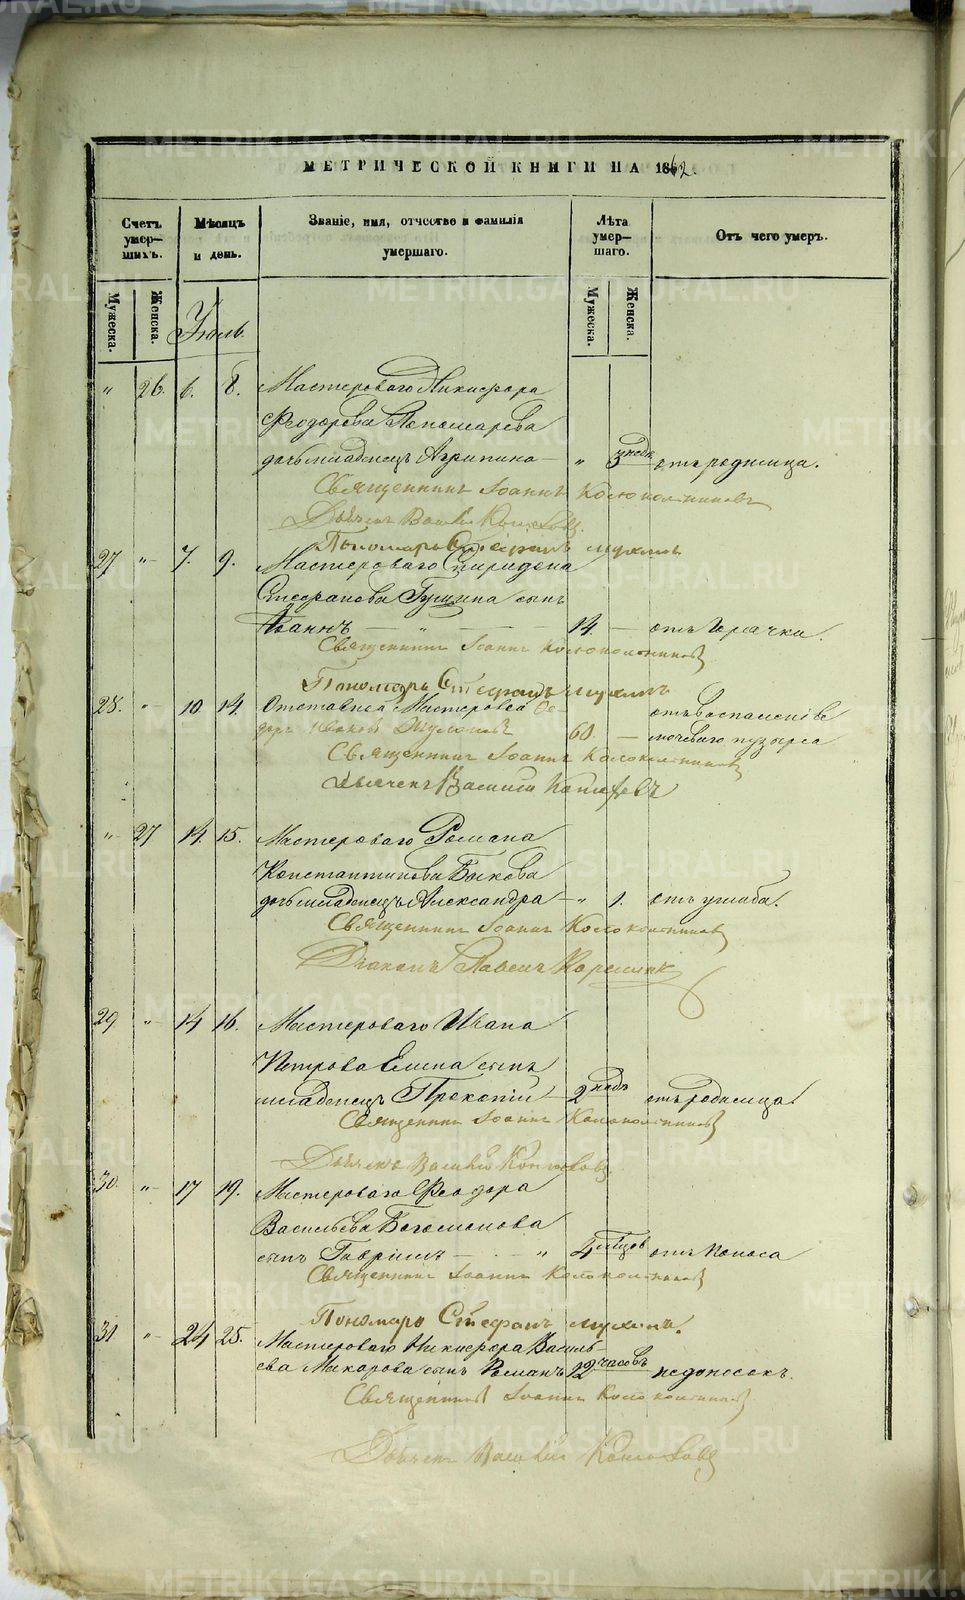 МЕТРИЧЕСКОЙ КНИГИ НА 1862.
Счетъ умер-шихъ.
Мѣсяцъ и день.
Званіе, имя, отчество и фамилія умершаго.
Лѣта умер-шаго.
Отъ чего умеръ.
Мужеска. Женска. Мужеска. Женска.
Іюль.
" 26. 6. 8. Мастероваго Никифора
Феодорова Пономарева
дочь младенецъ Агрипина — " 3 отъ родимца.
Священникъ Іоаннъ Колокольниковъ
Василій
Пономарь Стефанъ
27 " 7. 9. Мастероваго Спиридона
Стефанова сынъ
Іоаннъ — " — 14. — отъ Горячки.
Священникъ Іоаннъ Колокольниковъ
Пономарь Стефанъ
28. " 10 14. Отставной Мастеровой Фе-
доръ Ивановъ 60. — отъ воспаленія
мочеваго пузыря
Священникъ Іоаннъ Колокольниковъ
Дьячекъ Василій
" 27 14. 15. Мастероваго Романа
Константинова Быкова
дочь младенецъ Александра — " 1. отъ
Священникъ Іоаннъ Колокольниковъ
Діаконъ Павелъ
29 " 14 16. Мастероваго Ивана
Петрова сынъ
младенецъ Прокопій — 2 нѣдъ отъ родимца.
Священникъ Іоаннъ Колокольниковъ
Дьячекъ Василій
30. " 17 19. Мастероваго Феодора
Васильева Богомолова
сынъ Гавріилъ — " 4 мѣсцовъ отъ Поноса
Священникъ Іоаннъ Колокольниковъ
Пономарь Стефанъ
31 " 24 25. Мастероваго Никифора Василь-
ева Макарова сынъ Романъ 12 часовъ недоносокъ.
Священникъ Іоаннъ Колокольниковъ
Дьячекъ Василій
METRIKI.GASO-URAL.RU